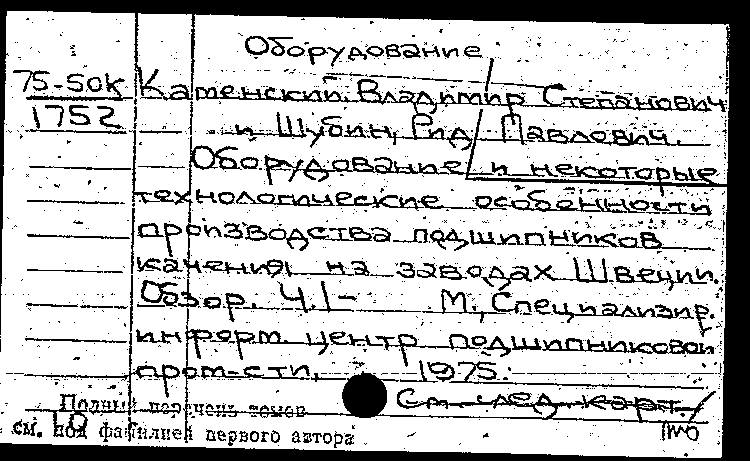 Оборудование
75-50К Каменский, Владимир Степанович
1752 и Шубин, Рид Павлович.
Оборудование и некоторые
технологические особенности
производства подшипников
качения на заводах Швеции.
Обзор. Ч.1- М., Специализир.
информ. центр подшипниковой
пром-сти, 1975.
См. след. карт.
Полный перечень томов
см. под фамилией первого автора